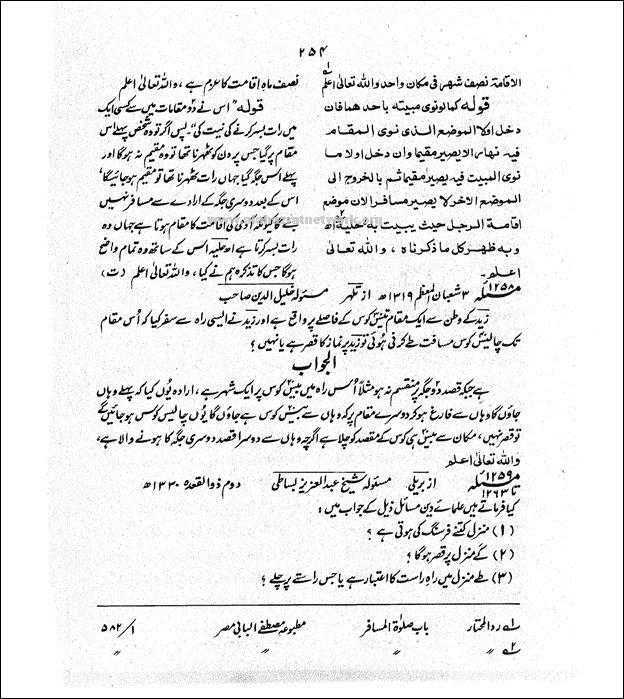 ۲۵۴
الاقامۃ نصف شہر فی مکان واحد واللہ تعالیٰ اعلم
قولہ کما لو نوی مبیتہ باحدھما فان
دخل اولا الموضع الذی نوی المقام
فیہ نھارا لایصیر مقیما وان دخل اولا ما
نوی المبیت فیہ یصیر مقیما ثم بالخروج الی
الموضع الاخر لایصیر مسافرا لان موضع
اقامۃ الرجل حیث یبیت بہ حلیۃ اھ
وبہ ظھر کل ما ذکرناہ ، واللہ تعالیٰ
اعلم۔
نصف ماہ اقامت کا عزم ہے ، واللہ تعالیٰ اعلم
قولہ " اس نے دو مقامات میں سے کسی ایک
میں رات بسر کرنے کی نیت کی"۔ پس اگر تو وہ شخص پہلے اس
مقام پر گیا جس پر دن کو ٹھہرنا تھا تو وہ مقیم نہ ہوگا اور
پہلے اس جگہ گیا جہاں رات ٹھہرنا تھا تو مقیم ہوجائیگا،
اس کے بعد دوسری جگہ کے ارادے سے مسافر نہیں
بنے گا کیونکہ آدمی کی اقامت کا مقام ہوتا ہے جہاں وہ
رات بسر کرتا ہے اھ حلیہ اس کے ساتھ وہ تمام واضح
ہوگا جس کا تذکرہ ہم نے کیا ، واللہ تعالیٰ اعلم (ت)
مسئلہ ۱۲۵۸ ۳ شعبان المعظم ۱۳۱۹ھ از تلہر مسئولہ خلیل الدین صاحب
زید کے وطن سے ایک مقام تیس کوس کے فاصلے پر واقع ہے اور زید نے ایسی راہ سے سفر کیا کہ اُس مقام
تک چالیس کوس مسافت طے کرنی ہُوئی تو زید پر نماز کا قصر ہے یا نہیں ؟
الجواب
ہے جبکہ قصد دو جگہ پر منقسم نہ ہو مثلاً اُس راہ میں بیس کوس پر ایک شہر ہے ، ارادہ یُوں کیا کہ پہلے وہاں
جاؤں گا وہاں سے فارغ ہو کر دوسرے مقام پر کہ وہاں سے بیس کوس ہے جاؤں گا یُوں چالیس کوس ہوجائیں گے
تو قصر نہیں ، مکان سے بیس ہی کوس کے مقصد کو چلا ہے اگرچہ وہاں سے دوسرا قصد دوسری جگہ کا ہونے والا ہے ،
واللہ تعالیٰ اعلم
مسئلہ ۱۲۵۹ تا ۱۲۶۳ از بریلی مسئولہ شیخ عبدالعزیز بساطی دوم ذوالقعدہ ۱۳۳۰ھ
کیا فرماتے ہیں علمائے دین مسائل ذیل کے جواب میں :
(۱) منزل کتنے فرسنگ کی ہوتی ہے ؟
(۲) کَے منزل پر قصر ہوگا ؟
(۳) طے منزل میں راہِ راست کا اعتبار ہے یا جس راستے پر چلے ؟
۱؎ ردالمحتار باب صلوٰۃ المسافر مطبوعہ مصطفے البابی مصر ۱/ ۵۸۲
۲؎ ״ ״ ״